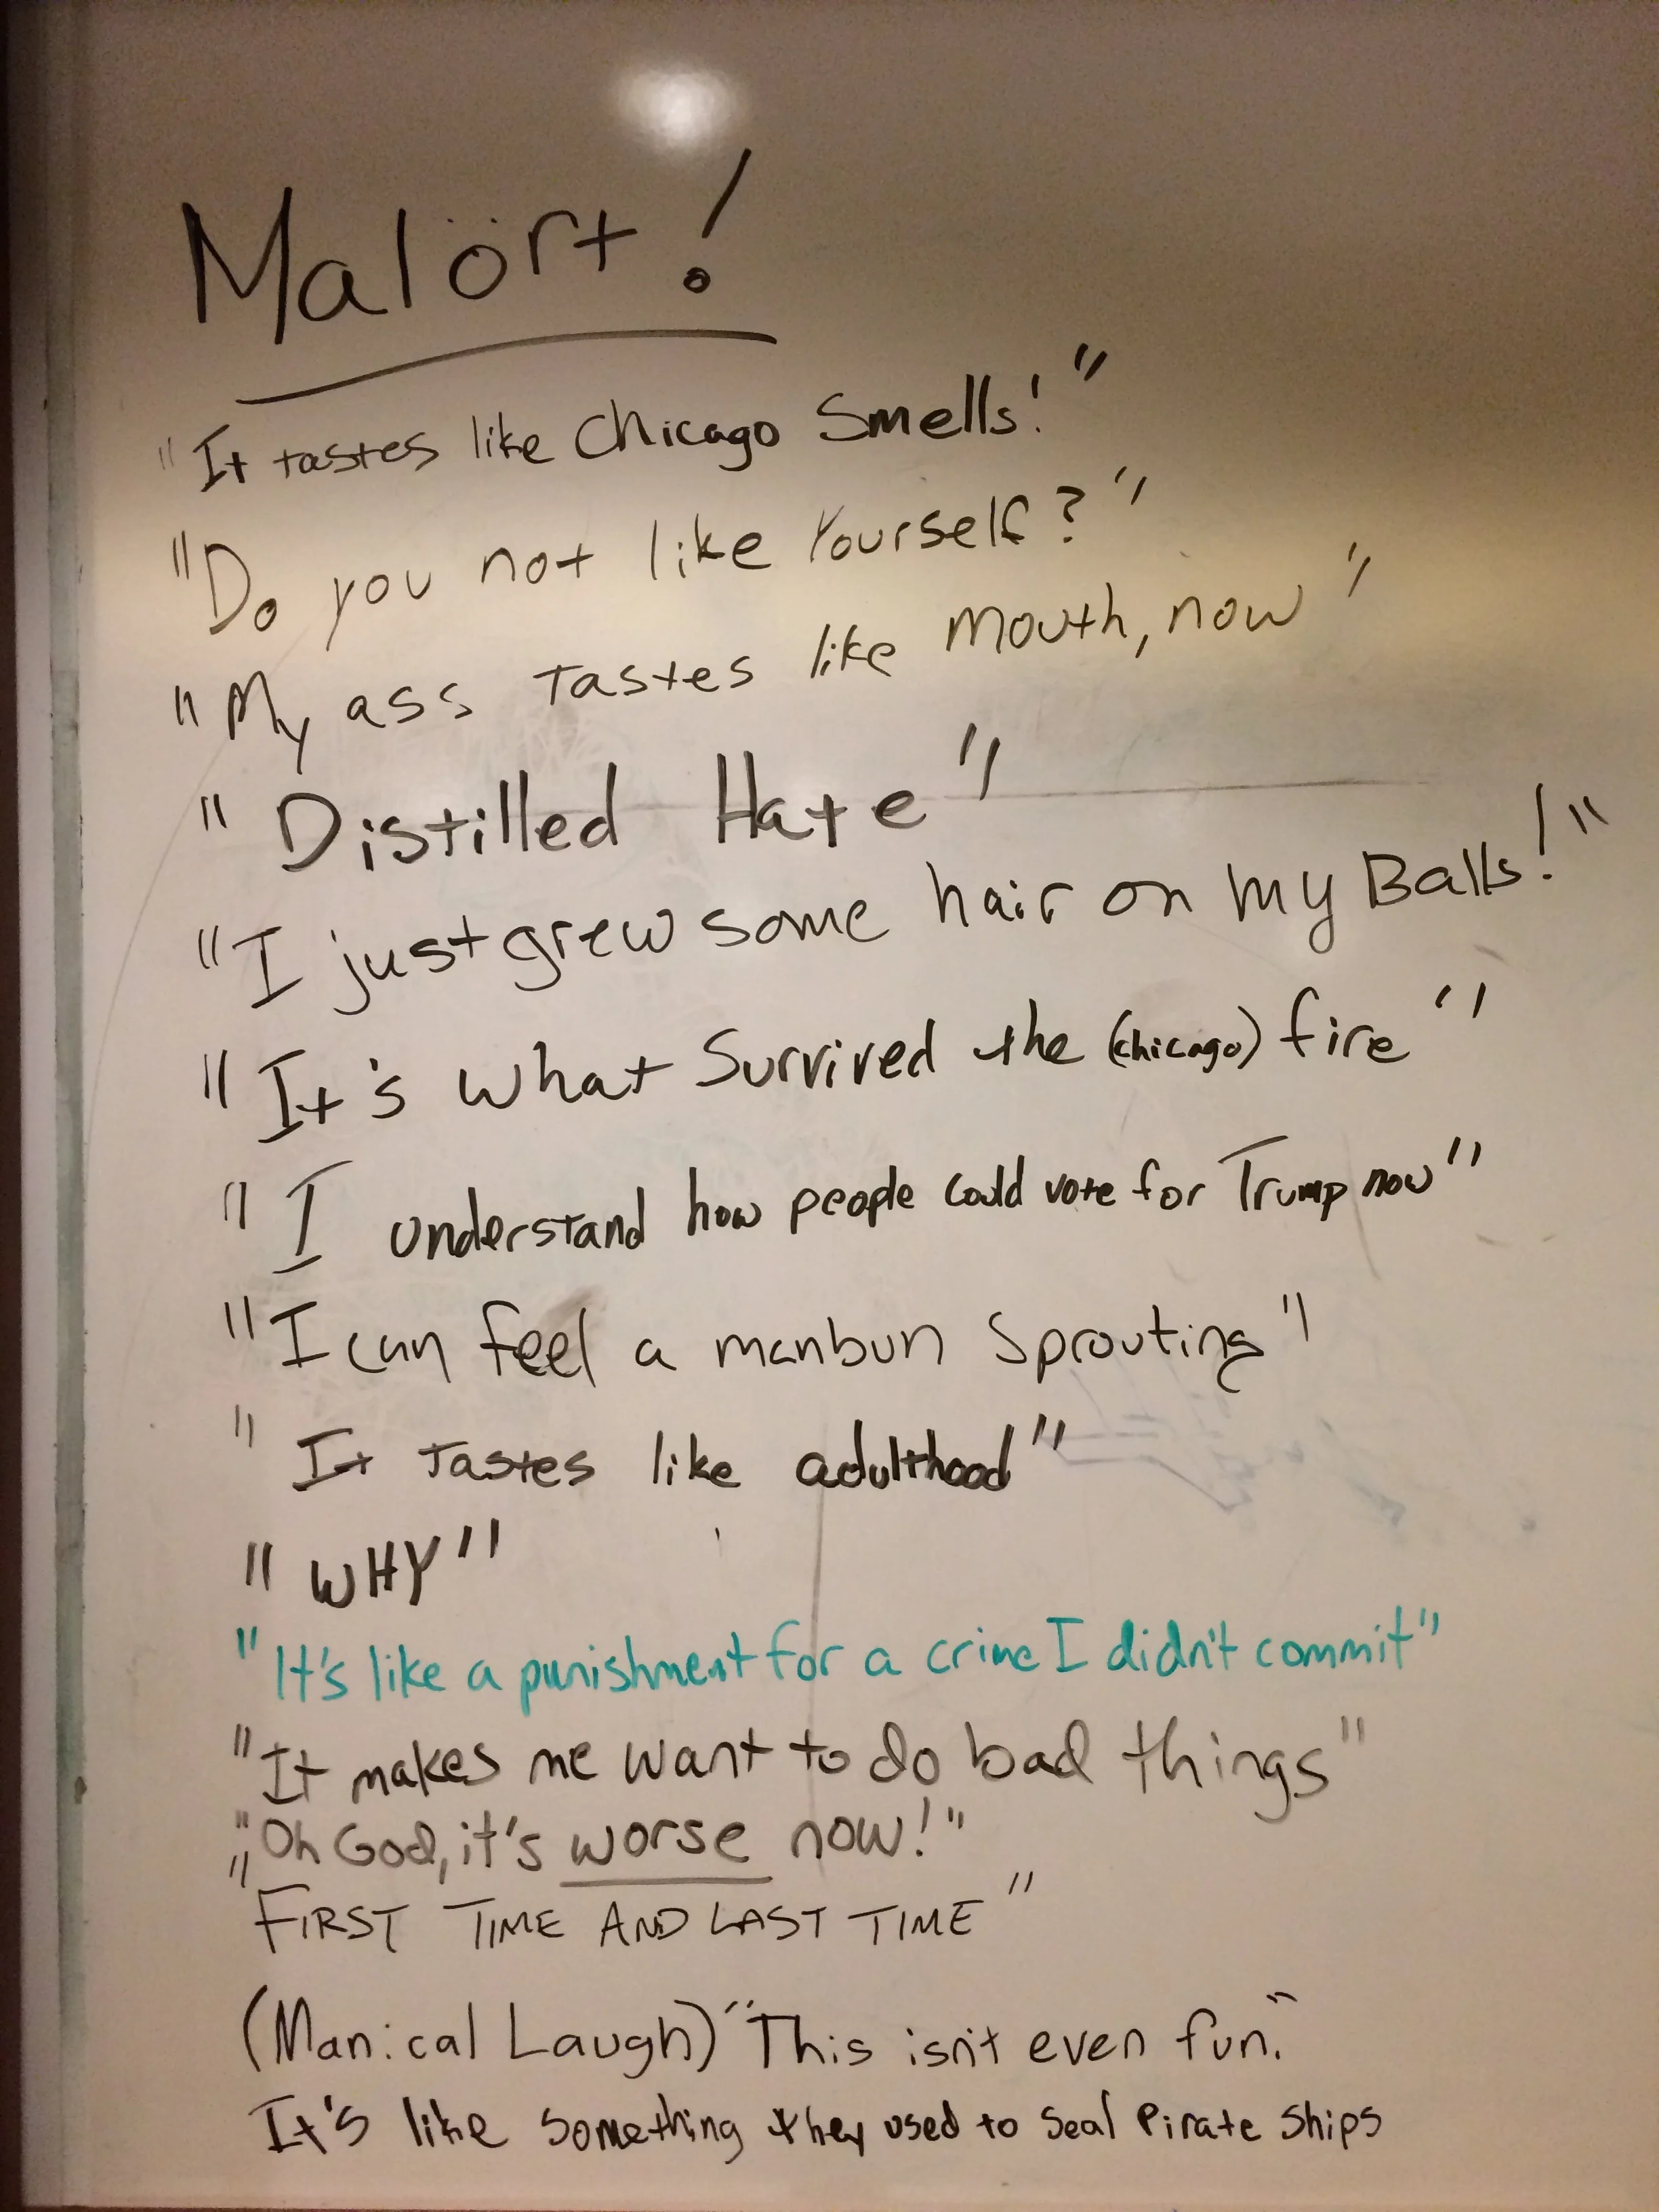 Malört!
"It tastes like Chicago Smells!"
"Do you not like Yourself?"
"My ass tastes like mouth, now"
"Distilled Hate"
"I just grew some hair on my Balls!"
"It's what Survived the (chicago) fire"
"I understand how people could vote for Trump now"
"I can feel a manbun Sprouting"
"It tastes like adulthood"
"WHY"
"It's like a punishment for a crime I didn't commit"
"It makes me want to do bad things"
"Oh God, it's worse now!"
"FIRST TIME AND LAST TIME"
(Manical Laugh) "This isn't even fun."
It's like something they used to seal Pirate Ships